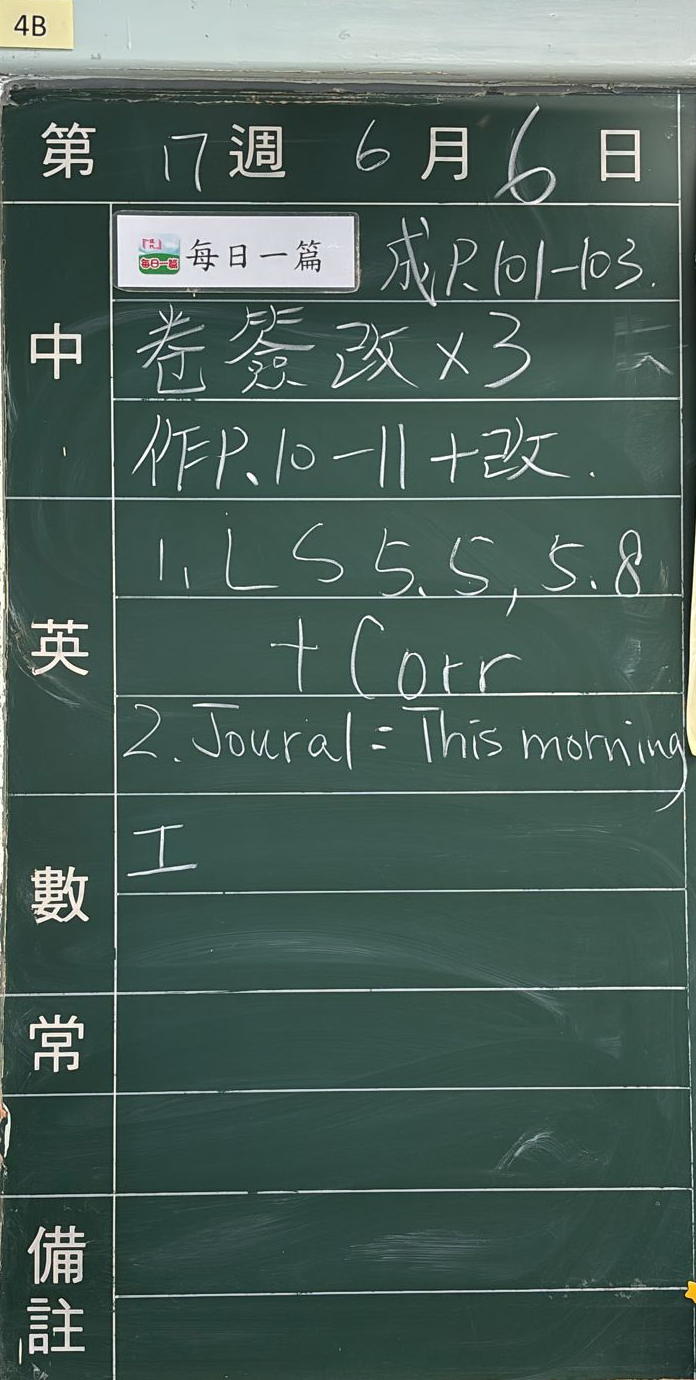 4B
第 17 週 6 月 6 日
中
每日一篇 每日一篇 成P.101-103.
卷簽改x3
作P.10-11+改.
英
1. LS 5.5, 5.8
+ Corr
2. Joural = This morning
數
工
常
備註